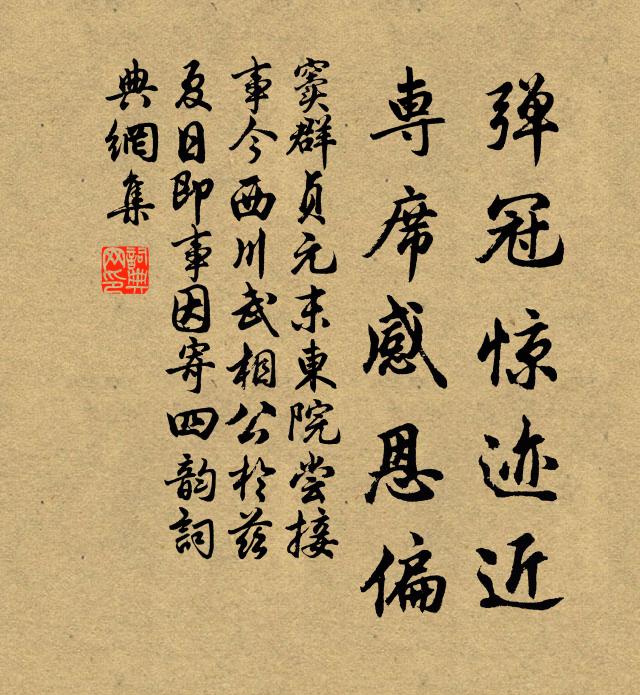 弹冠惊迹近
専席感恩偏
窦群贞元末東院尝接
事今西川武相公於兹
夏日即事因寄四韵詞
典網集
詞典网印